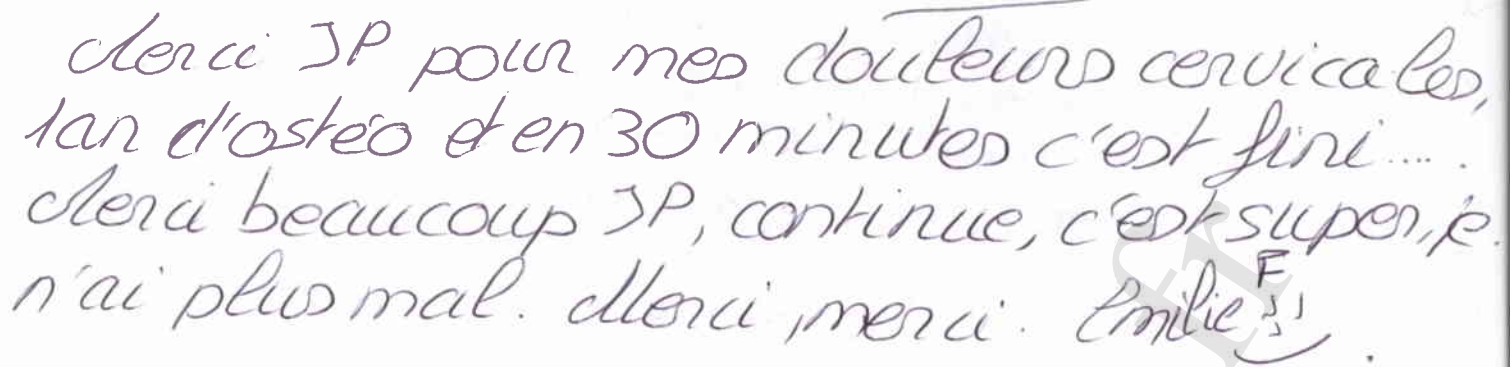 Merci JP pour mes douleurs cervicales,
1 an d'ostéo et en 30 minutes c'est fini....
Merci beaucoup JP, continue, c'est super, je
n'ai plus mal. Merci, merci. Emilie F
fr